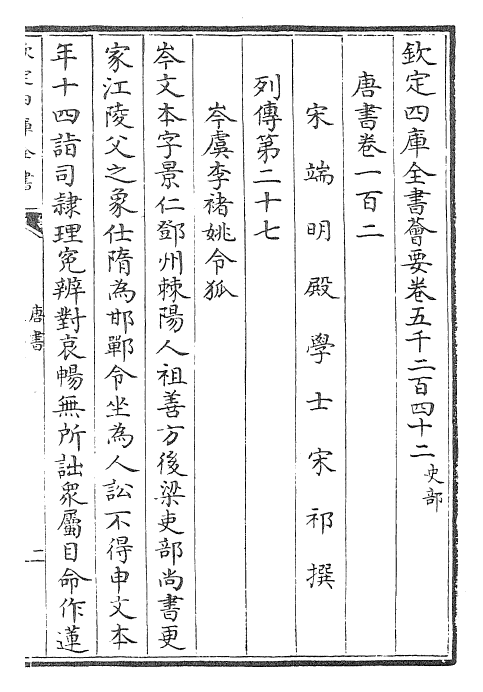 欽定四庫全書薈要卷五千二百四十二 史部
唐書卷一百二
宋端明殿學士宋祁撰
列傳第二十七
岑虞李禇姚令狐
岑文本字景仁鄧州棘陽人祖善方後梁吏部尚書更
家江陵父之象仕隋為邯鄲令坐為人訟不得申文本
年十四詣司隷理寃辨對哀暢無所詘衆屬目命作蓮
欽定四庫全書
唐書
二